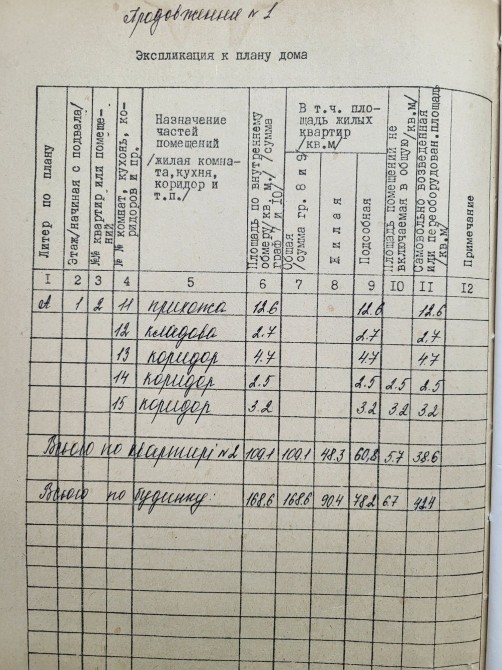 Продовження №1
Экспликация к плану дома
Литер по плану
Этаж/начиная с подвала/
№№ квартир или помеще-
ний
№ № комнат, кухонь, ко-
ридоров и пр.
Назначение
частей
помещений
/жилая комна-
та,кухня,
коридор и
т.п./
Площадь по внутреннему
обмеру/кв.м./ /сумма
граф 7 и 10/
В т.ч. пло-
щадь жилых
квартир
/кв.м/
Общая
/сумма гр. 8 и 9/
Жилая
Подсобная
Площадь помещений не
включаемая в общую/кв.м/
Самовольно возведенная
или переоборудован.площадь
/кв.м/
Примечание
I 2 3 4 5 6 7 8 9 IO II I2
А 1 2 11 прихожа 12.6 12.6 12.6
12 кладова 2.7 2.7 2.7
13 коридор 4.7 4.7 4.7
14 коридор 2.5 2.5 2.5 2.5
15 коридор 3.2 3.2 3.2 3.2
Всього по квартирі №2 109.1 109.1 48.3 60,8 5.7 38.6
Всього по будинку: 168.6 168.6 90.4 78.2 6.7 42.4